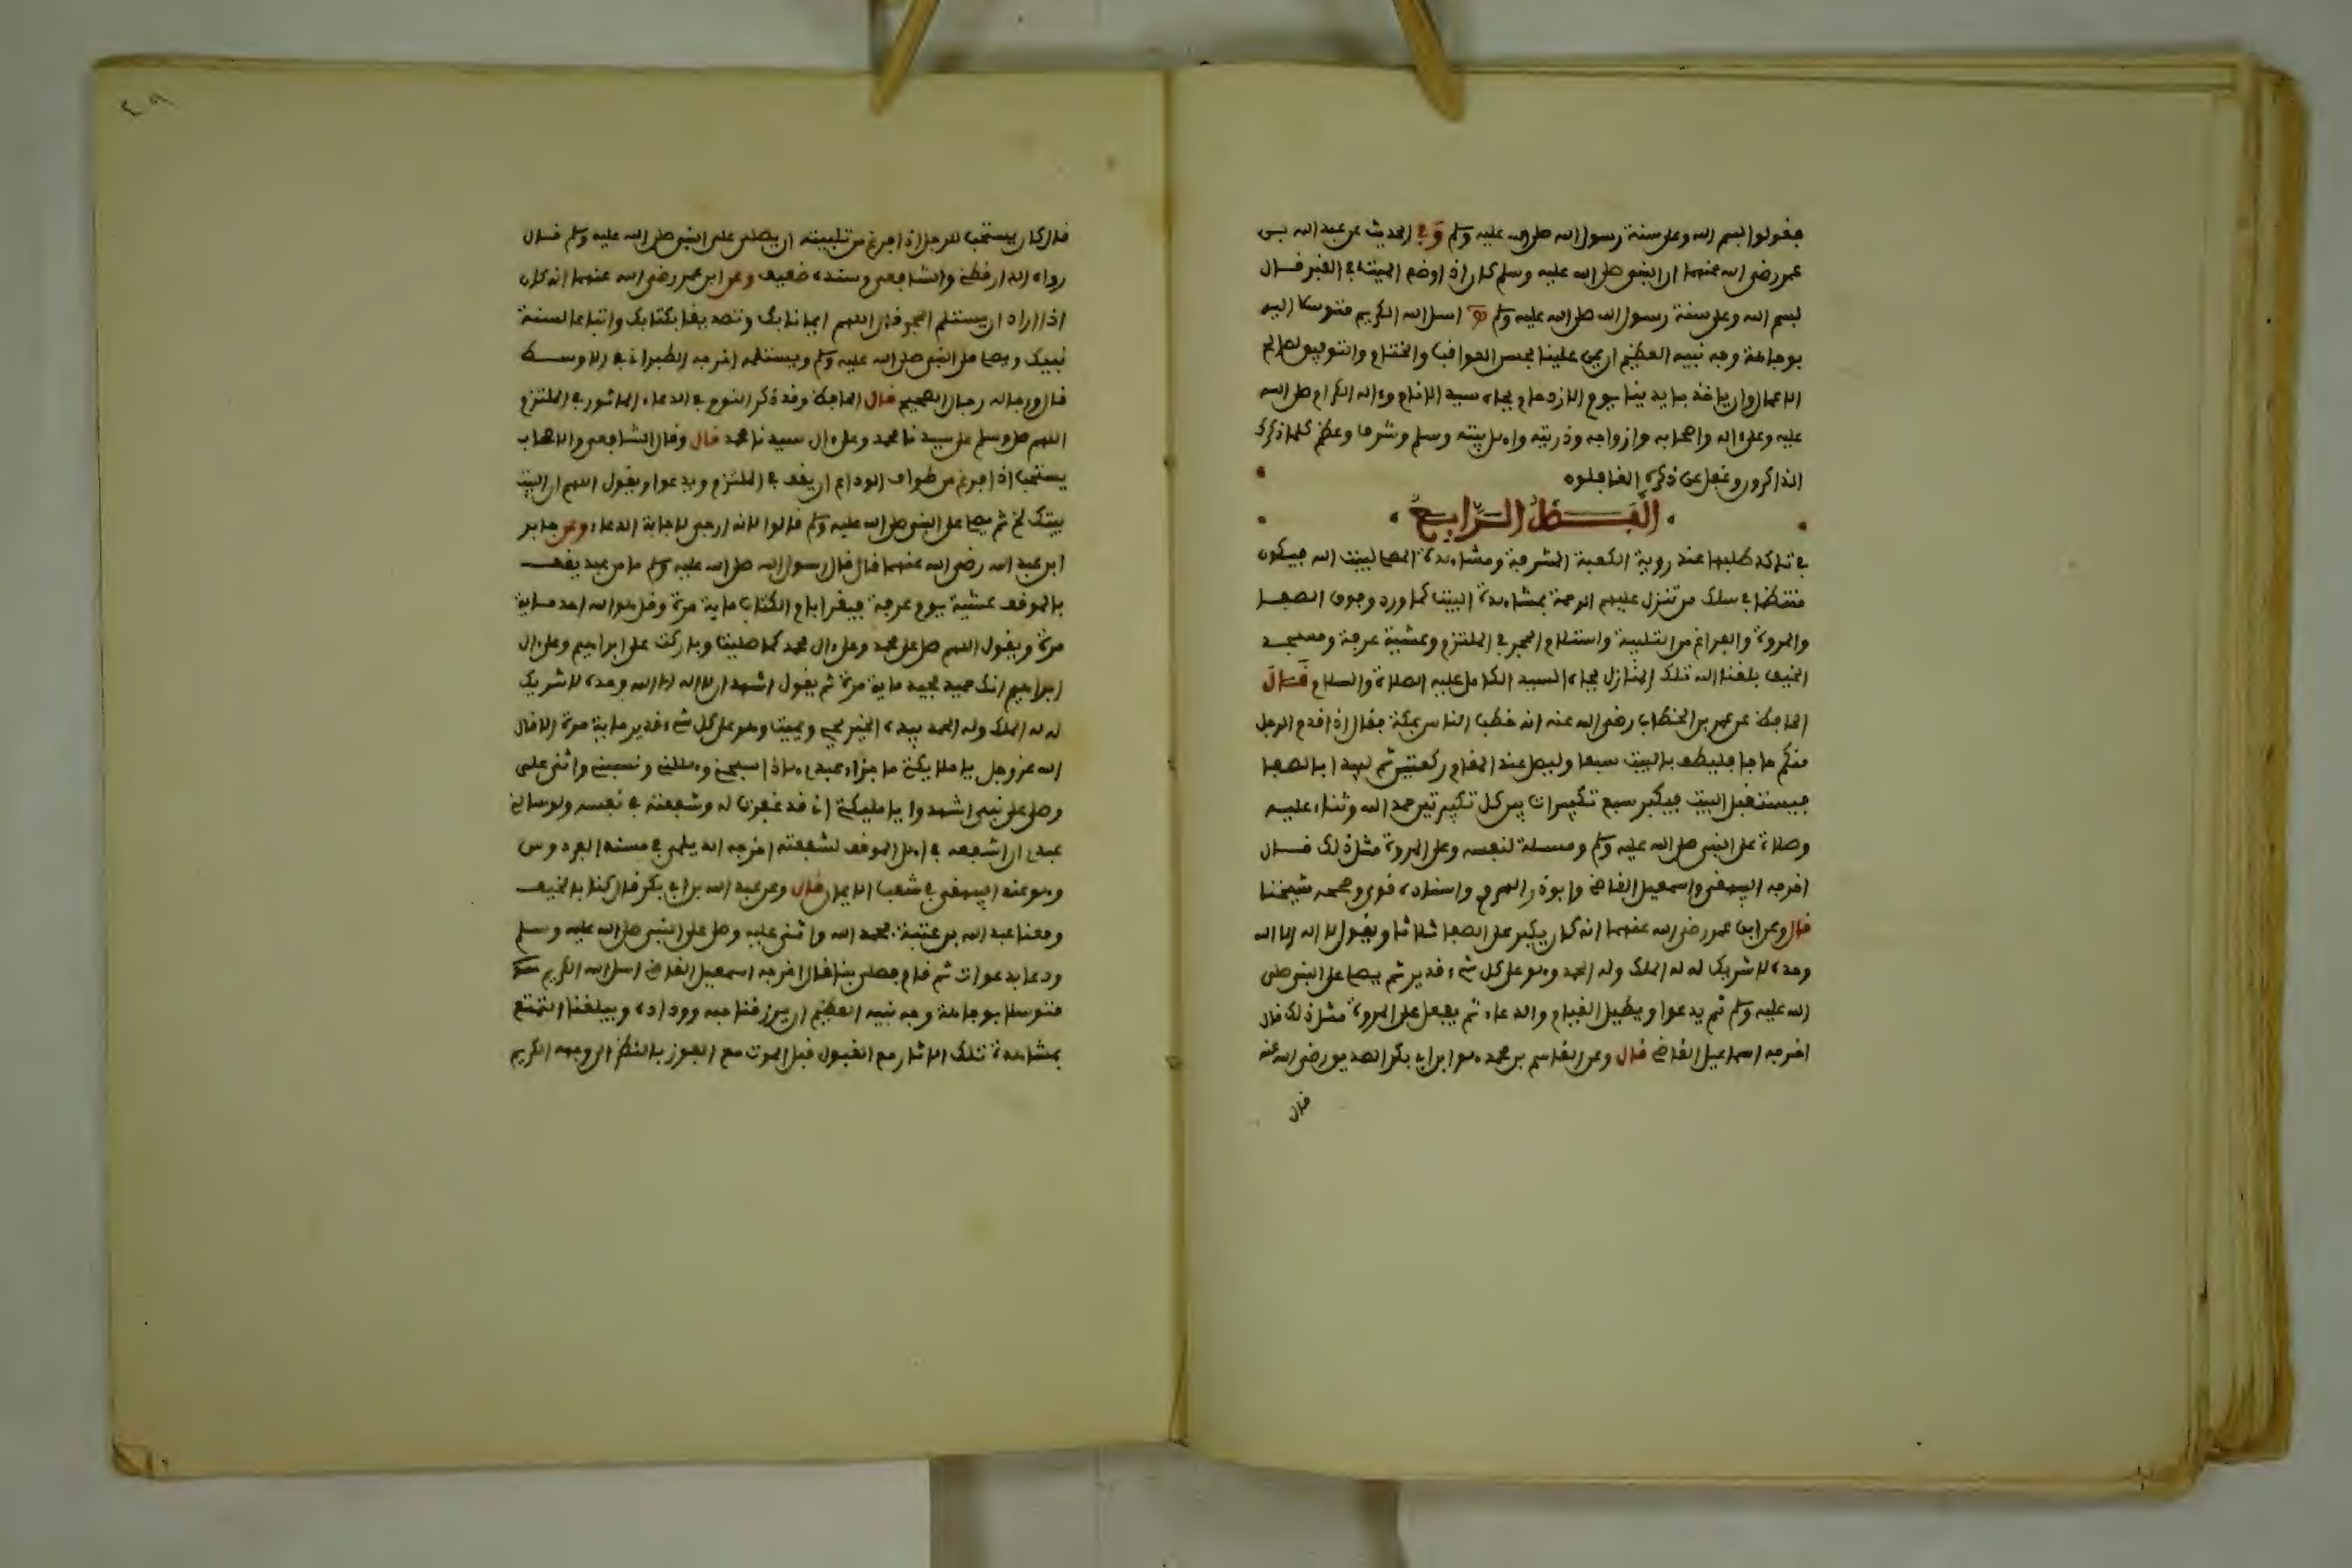 فقولوا بسم الله وعلى سنة رسول الله صلى الله عليه وسلم وفي الحديث عن عبد الله بن
عمر رضي الله عنهما ان النبي صلى الله عليه وسلم كان اذا وضع الميت في القبر قال
بسم الله وعلى سنة رسول الله صلى الله عليه وسلم اسال الله الكريم متوسلا اليه
بوجاهة وجه نبيه العظيم ان يمن علينا بحسن العواقب والختام والتوفيق لصالح
الاعمال وان ياخذ بايدينا يوم الازدحام بجاه سيد الانام وءاله الكرام صلى الله
عليه وعلى ءاله واصحابه وازواجه وذريته واهل بيته وسلم وشرف وعظم كلما ذكرك
الذاكرون وغفل عن ذكره الغافلون
الفصل الرابع
في تاكد طلبها عند روية الكعبة المشرفة ومشاهدة المصا لبيت الله فيكون
منتظما في سلك من تنزل عليهم الرحمة بمشاهدة البيت كما ورد وفوق الصفا
والمروة والفراغ من التلبية واستلام الحجر في الملتزم وعشية عرفة ومسجد
الخيف بلغنا الله تلك المنازل بجاه السيد الكامل عليه الصلاة والسلام قال
الحافظ عن عمر بن الخطاب رضي الله عنه انه خطب الناس بمكة فقال اذا قدم الرجل
منكم حاجا فليطف بالبيت سبعا وليصل عند المقام ركعتين ثم ليبدا بالصفا
فيستقبل البيت فيكبر سبع تكبيرات بين كل تكبيرتين حمد الله وثناء عليه
وصلاة على النبي صلى الله عليه وسلم ومسلة لنفسه وعلى المروة مثل ذلك قال
اخرجه البيهقي واسمعيل القاضي وابوذر الهروي واسناده قوي وصححه شيخنا
قال وعن ابن عمر رضي الله عنهما انه كان يكبر على الصفا ثلاثا ويقول لا اله الا الله
وحده لا شريك له له الملك وله الحمد وهو على كل شيء قدير ثم يصلي على النبي صلى
الله عليه وسلم ثم يدعوا ويطيل القيام والدعاء ثم يفعل على المروة مثل ذلك قال
اخرجه اسماعيل القاضي قال وعن القاسم بن محمد هو ابن ابي بكر الصديق رضي الله عنه
قال
٢٩
قال كان يستحب للرجل اذا فرغ من تلبيته ان يصلي على النبي صلى الله عليه وسلم قال
رواه الدارقطني والشافعي وسنده ضعيف وعن ابن عمر رضي الله عنهما انه كان
اذا اراد ان يستلم الحجر قال اللهم ايمانا بك وتصديقا بكتابك واتباعا لسنة
نبيك ويصلي على النبي صلى الله عليه وسلم ويستلمه اخرجه الطبراني في الاوسط
قال ورجاله رجال الصحيح قال الحافظ وقد ذكر النووي في الدعاء الماثور في الملتزم
اللهم صل وسلم على سيدنا محمد وعلى ءال سيدنا محمد قال وقال الشافعي والاصحاب
يستحب اذا فرغ من طواف الوداع ان يقف في الملتزم ويدعوا ويقول اللهم ان البيت
بيتك الخ ثم يصلي على النبي صلى الله عليه وسلم قالوا لانه ارجى لاجابة الدعاء وعن جابر
ابن عبد الله رضي الله عنهما قال قال رسول الله صلى الله عليه وسلم ما من عبد يقف
بالموقف عشية يوم عرفة فيقرا بام الكتاب ماية مرة وقل هو الله احد ماية
مرة ويقول اللهم صل على محمد وعلى ءال محمد كما صليت وباركت على ابراهيم وعلى ءال
ابراهيم انك حميد مجيد ماية مرة ثم يقول اشهد ان لا اله الا الله وحده لا شريك
له له الملك وله الحمد بيده الخير يحيي ويميت وهو على كل شيء قدير ماية مرة الا قال
الله عز وجل يا ملايكتي ما جزاء عبدي هاذا سبحني وهللني ونسبني واثنى علي
وصلى على نبيي اشهدوا يا مليكتي اني قد غفرت له وشفعته في نفسه ولو سالني
عبدي ان اشفعه في اهل الموقف لشفعته اخرجه الديلمي في مسند الفردوس
وهو عند البيهقي في شعب الايمان قال وعن عبد الله بن ابي بكر قال كنا بالخيف
ومعنا عبد الله بن عتبة فحمد الله واثنى عليه وصلى على النبي صلى الله عليه وسلم
ودعا بدعوات ثم قام فصلى بنا قال اخرجه اسمعيل القاضي اسال الله الكريم
متوسلا بوجاهة وجه نبيه العظيم ان يرزقنا حبه ووداده ويبلغنا التمتع
بمشاهدة تلك الاثار مع القبول قبل الموت مع الفوز بالنظر الى وجهه الكريم